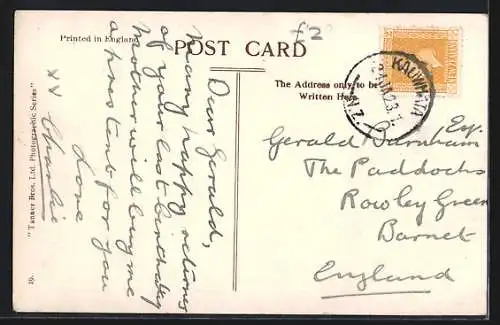 42
Printed in England
POST CARD
The Address only to be
Written Here
KAUWHATA
24 JA 23
N.Z.
Dear Gerald,
Many happy returns
of your last birthday
Mother will buy me
a present for you
Love
Charlie
xx
Gerald Esq.
The Paddocks
Rowley Green
Barnet
England
"Tanner Bros. Ltd. Photographic Series"
19.